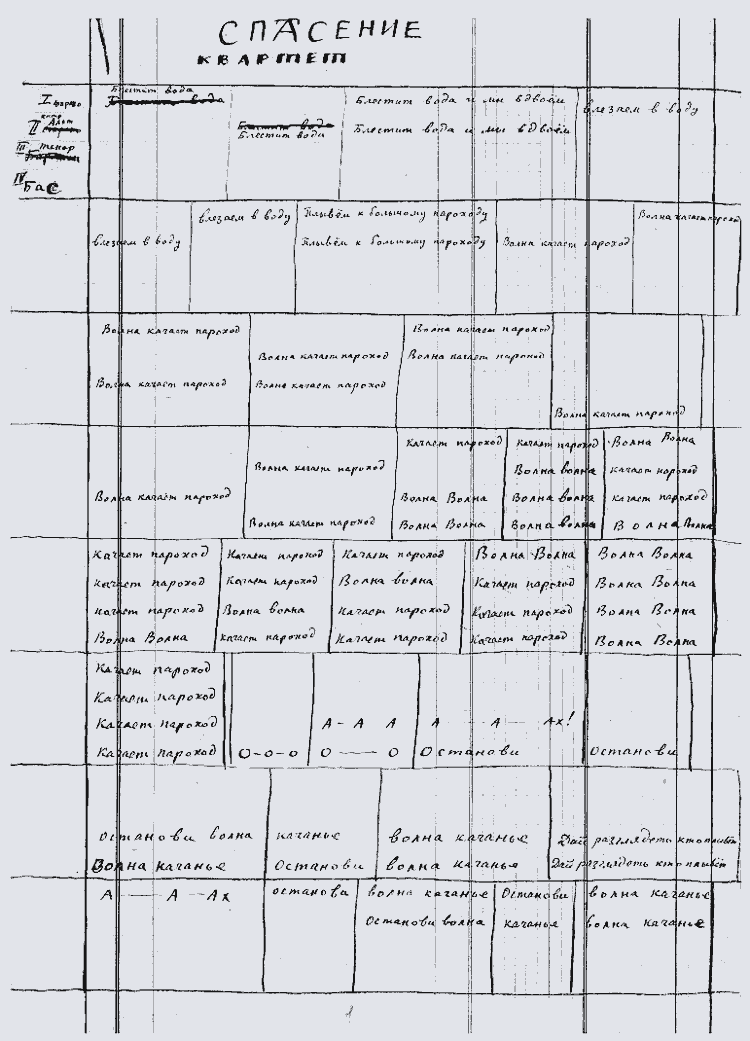 СПАСЕНИЕ
КВАРТЕТ
Блестит вода
I вода Блестит вода и мы вдвоём влезаем в воду
II Альт Блестит вода Блестит вода и мы вдвоём
III тенор
IV Бас
влезаем в воду Плывём к большому пароходу Волна качает пароход
влезаем в воду Плывём к большому пароходу Волна качает пароход
Волна качает пароход Волна качает пароход
Волна качает пароход Волна качает пароход
Волна качает пароход Волна качает пароход
Волна качает пароход
Качает пароход Качает пароход Волна Волна
Волна качает пароход Волна волна качает пароход
Волна качает пароход Волна Волна Волна волна качает пароход
Волна качает пароход Волна Волна Волна волна Волна Волна
Качает пароход Качает пароход Качает пароход Волна Волна Волна Волна
качает пароход Качает пароход Волна волна Качает пароход Волна Волна
качает пароход Волна волна Качает пароход Качает пароход Волна Волна
Волна Волна качает пароход Качает пароход Качает пароход Волна Волна
Качает пароход
Качает пароход
Качает пароход А - А А А — А — Ах!
Качает пароход О-о-о О — О Останови Останови
Останови волна качанье волна качанье Дай разглядеть кто плывёт
Волна качанье Останови волна качанье Дай разглядеть кто плывёт
А — А — Ах останови волна качанье Останови волна качанье
Останови волна качанье волна качанье
1